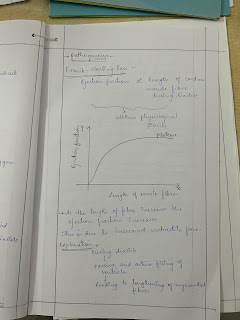 → pathogenesis
Frank-Starling law -
Ejection fraction ∝ length of cardiac
muscle fibre
during diastole
within physiological
limits
Ejection fraction
plateau
Length of muscle fibre
→ As the length of fibre increases the
ejection fraction increases
This is due to increased contractile force
explanation -
During diastole
↓
passive and active filling of
ventricle
↓
leading to lengthening of myocardial
fibres